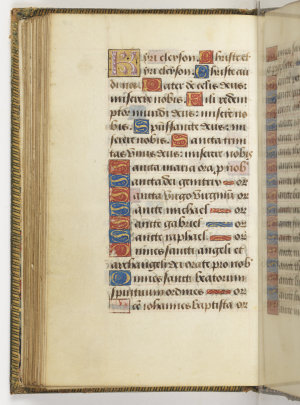 Kyri eleyson. Christe el
kyri eleyson. Christe au
di nos. Pater de celis deus:
miserere nobis. Fili redem
ptor mundi deus: miserere no
bis. Spūs sancte deus: mi
serere nobis. Sancta trini
tas unus deus: miserere nobis
Sancta maria ora p nob
Sancta dei genitrix or
Sancta virgo virginū or
Sancte michael or
Sancte gabriel or
Sancte raphael or
Omnes sancti angeli et
archangeli dei orate p nob
Omnes sancti beatorum
spirituum ordines or
Scē iohannes baptista or